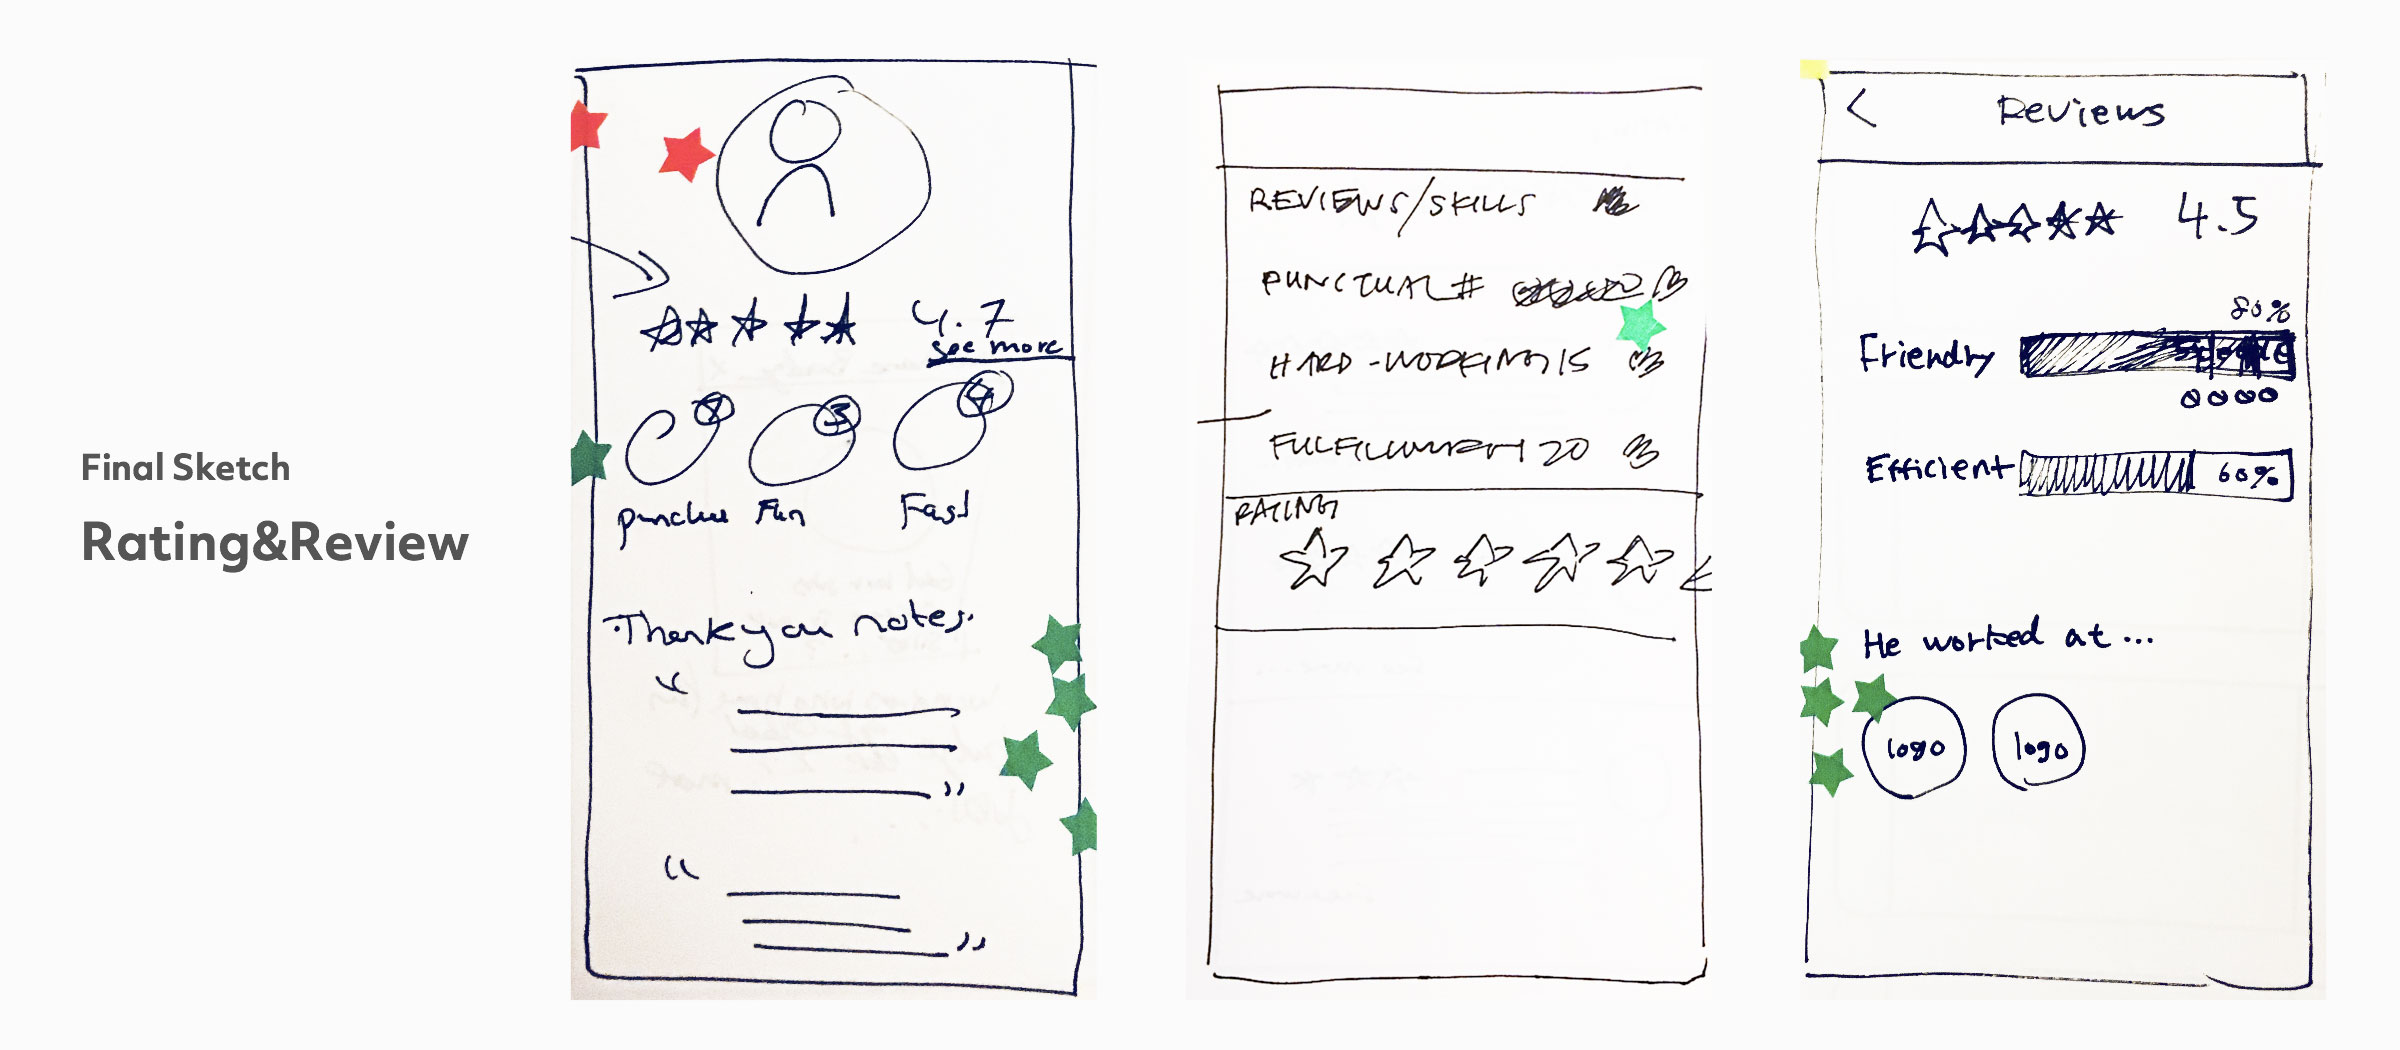 Final Sketch
Rating&Review
4.7
see more
3
4
Fun
Fast
Thank you notes.
REVIEWS/SKILLS
PUNCTUAL #
HARD-WORKING 15
FULFILLMENT 20
RATING
<
Reviews
4.5
80%
Friendly
Efficient 60%
He worked at...
logo
logo